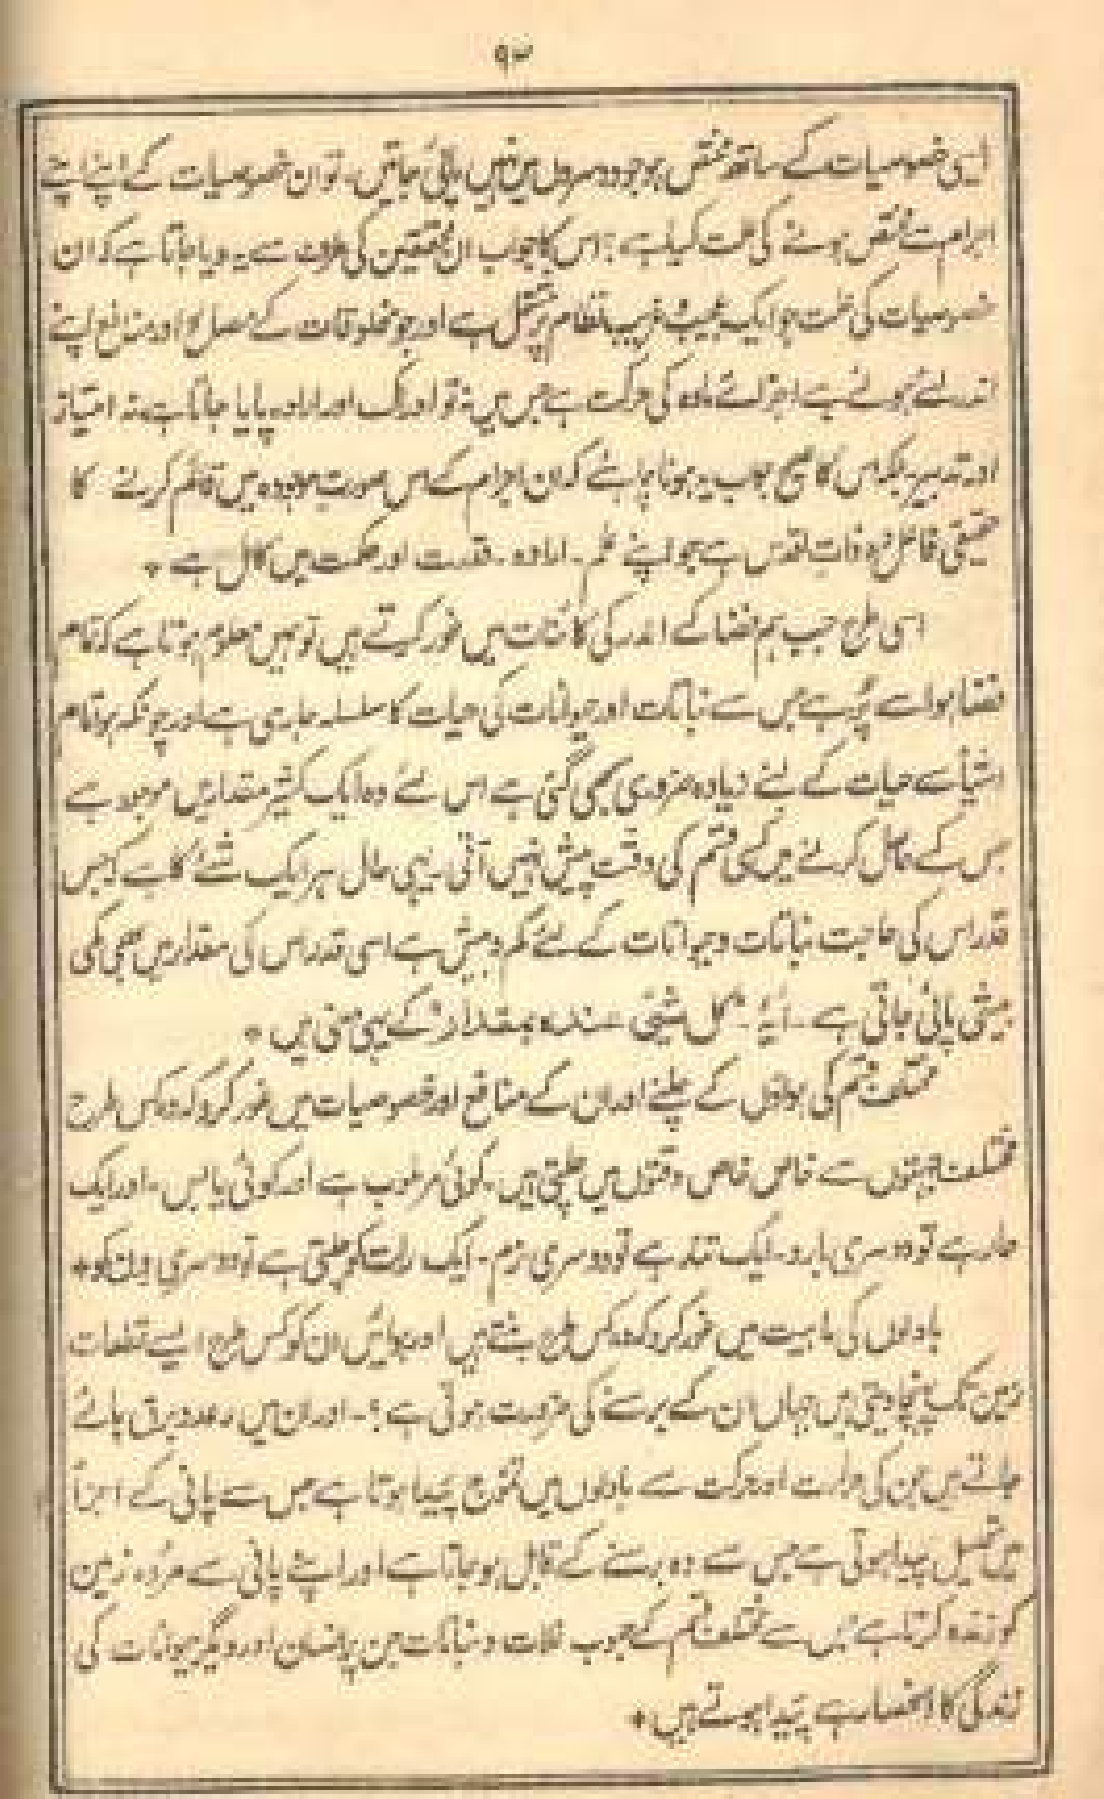 ۹۳
ایسی خصوصیات کے ساتھ مختص ہو جو دوسروں میں نہیں پائی جاتیں، تو ان خصوصیات کے اپنے اپنے
اجرام سے مختص ہونے کی علت کیا ہے؟ اس کا جواب ان محققین کی طرف سے یہ دیا جاتا ہے کہ ان
خصوصیات کی علت جو ایک عجیب و غریب نظام پر مشتمل ہے اور جو مخلوقات کے مصالح اور منافع اپنے
اندر لئے ہوئے ہے اجزائے مادہ کی حرکت ہے جس میں نہ تو ادراک اور ارادہ پایا جاتا ہے، نہ امتیاز
اور تدبیر۔ بلکہ اس کا صحیح جواب یہ ہونا چاہئے کہ ان اجرام کے اس صورت موجودہ میں قائم کرنے کا
حقیقی فاعل وہ ذات اقدس ہے جو اپنے علم۔ ارادہ۔ قدرت اور حکمت میں کامل ہے *
اسی طرح جب ہم فضا کے اندر کی کائنات میں غور کرتے ہیں تو ہمیں معلوم ہوتا ہے کہ تمام
فضا ہوا سے پُر ہے جس سے نباتات اور حیوانات کی حیات کا سلسلہ جاری ہے اور چونکہ ہوا تمام
اشیائے حیات کے لئے زیادہ ضروری سمجھی گئی ہے اس لئے وہ ایک کثیر مقدار میں موجود ہے
جس کے حاصل کرنے میں کسی قسم کی دقت پیش نہیں آتی۔ یہی حال ہر ایک شئے کا ہے کہ جس
قدر اس کی حاجت نباتات و حیوانات کے لئے کم و بیش ہے اسی قدر اس کی مقدار میں بھی کمی
بیشی پائی جاتی ہے۔ آیۂ "کل شیئی عندہ بمقدار" کے یہی معنی ہیں *
مختلف قسم کی ہواؤں کے چلنے اور ان کے منافع اور خصوصیات میں غور کرو کہ وہ کس طرح
مختلف جہتوں سے خاص خاص وقتوں میں چلتی ہیں۔ کوئی مرطوب ہے اور کوئی یابس۔ اور ایک
حار ہے تو دوسری بارد۔ ایک تند ہے تو دوسری نرم۔ ایک رات کو چلتی ہے تو دوسری دن کو *
بادلوں کی ماہیت میں غور کرو کہ وہ کس طرح بنتے ہیں اور ہوائیں ان کو کس طرح ایسے قطعات
زمین تک پہنچا دیتی ہیں جہاں ان کے برسنے کی ضرورت ہوتی ہے؟۔ اور ان میں رعد و برق پائے
جاتے ہیں جن کی حرارت اور حرکت سے بادلوں میں تموج پیدا ہوتا ہے جس سے پانی کے اجزا
میں تحلیل پیدا ہوتی ہے جس سے وہ برسنے کے قابل ہو جاتا ہے اور اپنے پانی سے مردہ زمین
کو زندہ کرتا ہے جس سے مختلف قسم کے حبوب غلات و نباتات جن پر انسان اور دیگر حیوانات کی
زندگی کا انحصار ہے پیدا ہوتے ہیں *